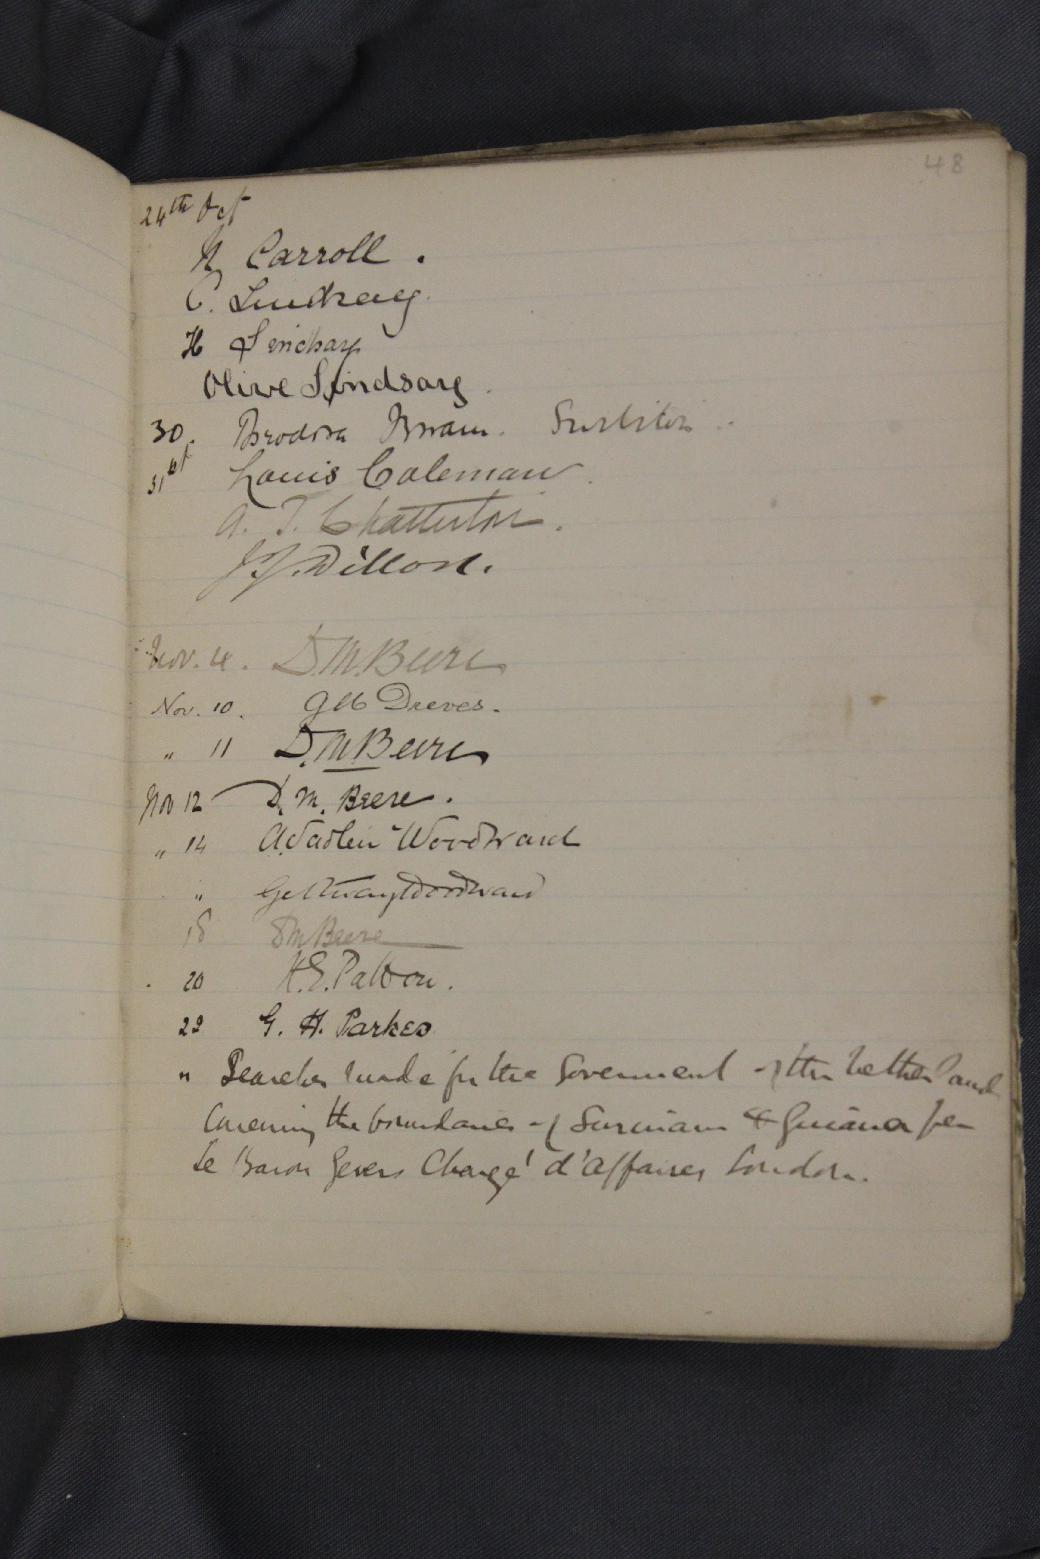 48
24th Oct
N Carroll.
C. Lindsay.
H Lindsay
Olive Lindsay.
30. Surbiton
31st Louis Coleman
A. T. Chatterton.
J J. Dillon.
Nov. 4. D. M. Beere
Nov. 10. Dreves.
" 11 D. M. Beere
Nov 12 D. M. Beere.
" 14 Woodward
" Woodward
18 D M Beere
20 H. E. Patton.
22 G. H. Parkes
" Searches made for the Government of the Netherland
the boundaries of Surinam & Guiana per
le Baron Gevers Chargé d'affaires London.